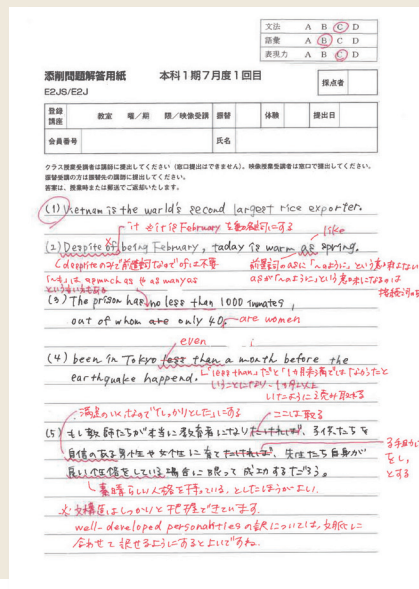 文法 A B C D
語彙 A B C D
表現力 A B C D
添削問題解答用紙 本科1期7月度1回目
E2JS/E2J
採点者
登録講座 教室 曜/期 限/映像受講 振替 体験 提出日
会員番号 氏名
クラス授業受講者は講師に提出してください（窓口提出はできません）。映像授業受講者は窓口で提出してください。
振替受講の方は振替先の講師に提出してください。
答案は、授業時または郵送でご返却いたします。
(1) Vietnam is the world's second largest rice exporter.
it
February
like
(2) Despite of being February, today is warm as spring.
despiteのみで前置詞なのでofは不要
前置詞のasに「~のように」という意味はない
as much as も as many as
asが「~のように」という意味になるのは
接続詞の
(3) The prison has no less than 1000 inmates,
out of whom are only 40.
are women
even
(4) been in Tokyo less than a month before the
earthquake happend.
「less than」だと「1ヶ月未満で
満足のいく
ここは取る
(5) もし教師たちが本当に教育者になりたければ、子供たちを
自信のある男性や女性に育てたければ、先生たち自身が
良い性格をしている場合に限って成功するだろう。
素晴らしい人格を持っている、としたほうがよい。
※文構造はしっかりと把握できています。
well-developed personalitiesの訳については、文脈に
合わせて訳せるようにするとよいですね。